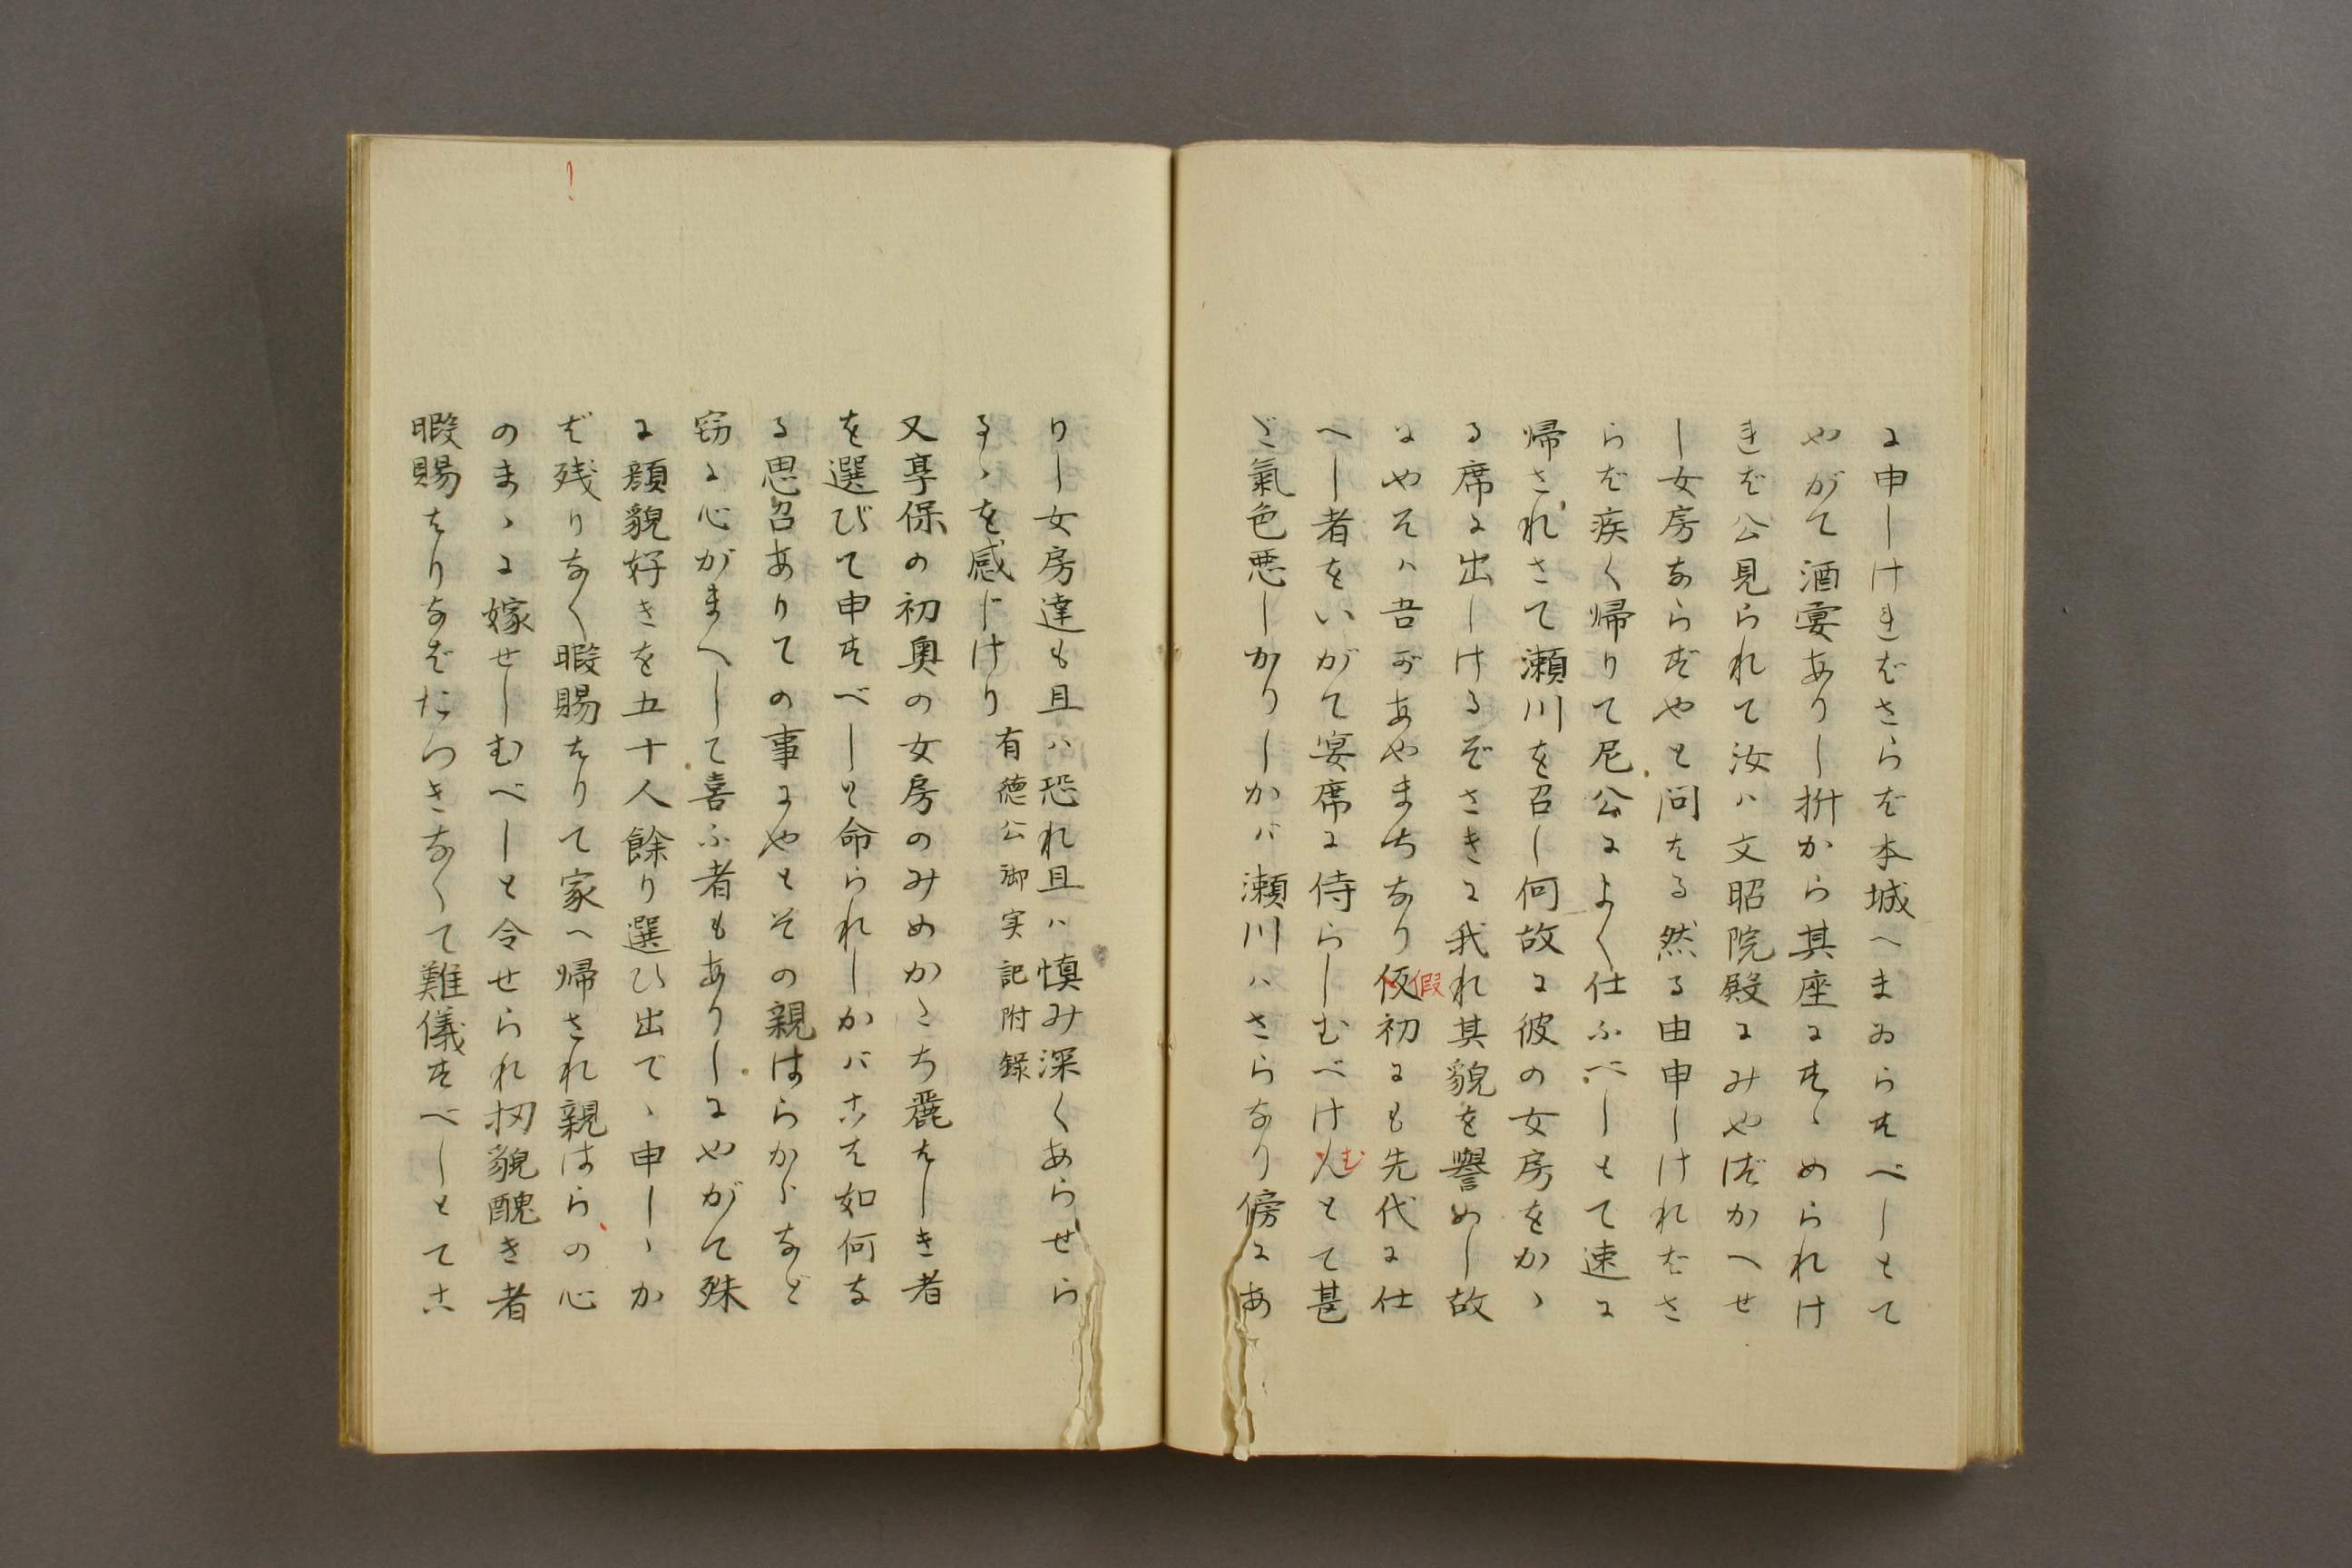 に申しけきばさらば本城へまゐらすべしとて
やがて酒宴ありし折から其座にすゝめられけ
きば公見られて汝ハ文昭院殿にみやづかへせ
し女房ならずやと問する然る由申しければさ
らば疾く帰りて尼公によく仕ふべしとて速に
帰されさて瀬川を召し何故に彼の女房をかゝ
る席に出しけるぞさきに我れ其貌を譽めし故
にやそハ吾があやまちなり仮初にも先代に仕
假
へし者をいがて宴席に侍らしむべけんとて甚
む
ど氣色悪しかりしかバ瀬川ハさらなり傍にあ
りし女房達も且ハ恐れ且ハ慎み深くあらせら
るゝを感じけり
有徳公御実記附録
又享保の初奥の女房のみめかたち麗はしき者
を選びて申すべしと命られしかバこは如何な
る思召ありての事にやとその親はらからなど
窃に心がまへして喜ふ者もありしにやがて殊
に顔貌好きを五十人餘り選ひ出で、申しゝか
ば残りなく暇賜はりて家へ帰され親はらの心
のまゝに嫁せしむべしと令せられ扨貌醜き者
暇賜はりなばたつきなくて難儀すべしとてこ